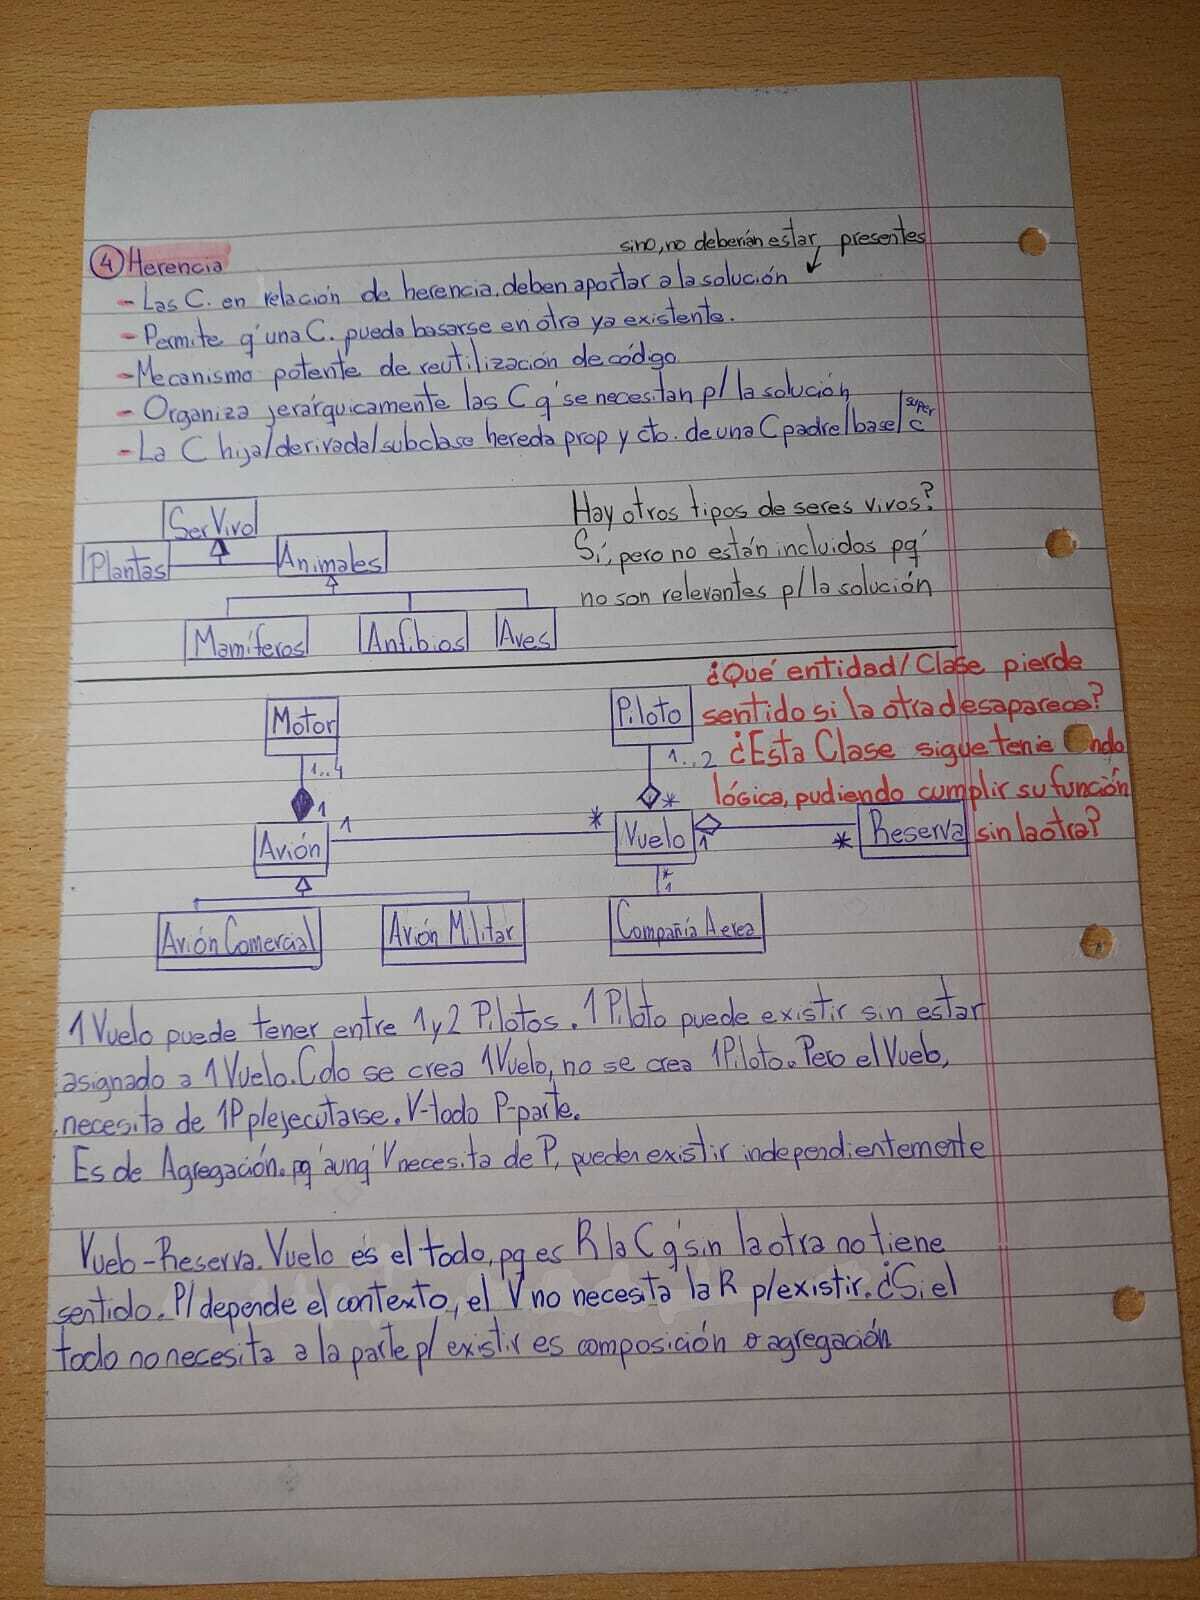 sino, no deberían estar presentes
4 Herencia
- Las C. en relación de herencia, deben aportar a la solución
- Permite q' una C. pueda basarse en otra ya existente.
- Mecanismo potente de reutilización de código
- Organiza jerárquicamente las C q' se necesitan p/ la solución
- La C hija/derivada/subclase hereda prop y cto. de una C padre/base/super C
Ser Vivo
Plantas
Animales
Mamíferos
Anfibios
Aves
Hay otros tipos de seres vivos?
Sí, pero no están incluidos pq'
no son relevantes p/ la solución
¿Qué entidad/Clase pierde
sentido si la otra desaparece?
¿Esta Clase sigue tenie ndo
lógica, pudiendo cumplir su función
sin la otra?
Motor
1..4
1
Avión
1
*
Piloto
1..2
*
Vuelo
1
*
Reserva
*
1
Avión Comercial
Avión Militar
Compañía Aerea
1 Vuelo puede tener entre 1 y 2 Pilotos. 1 Piloto puede existir sin estar
asignado a 1 Vuelo. Cdo se crea 1 Vuelo, no se crea 1 Piloto. Pero el Vuelo,
necesita de 1P p/ejecutarse. V-todo P-parte.
Es de Agregación. pq' aunq' V necesita de P, pueden existir independientemente
Vuelo - Reserva. Vuelo es el todo, pq es R la C q' sin la otra no tiene
sentido. P/ depende el contexto, el V no necesita la R p/existir. ¿Si el
todo no necesita a la parte p/ existir es composición o agregación